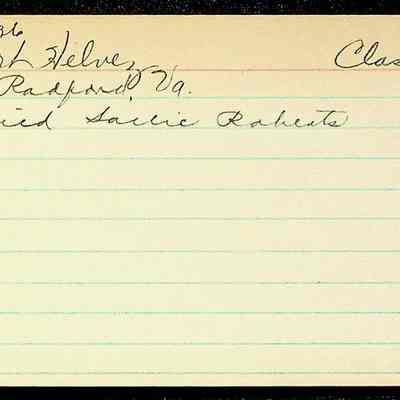 36
Helvey Clas
Radford, Va.
ied Sallie Roberts